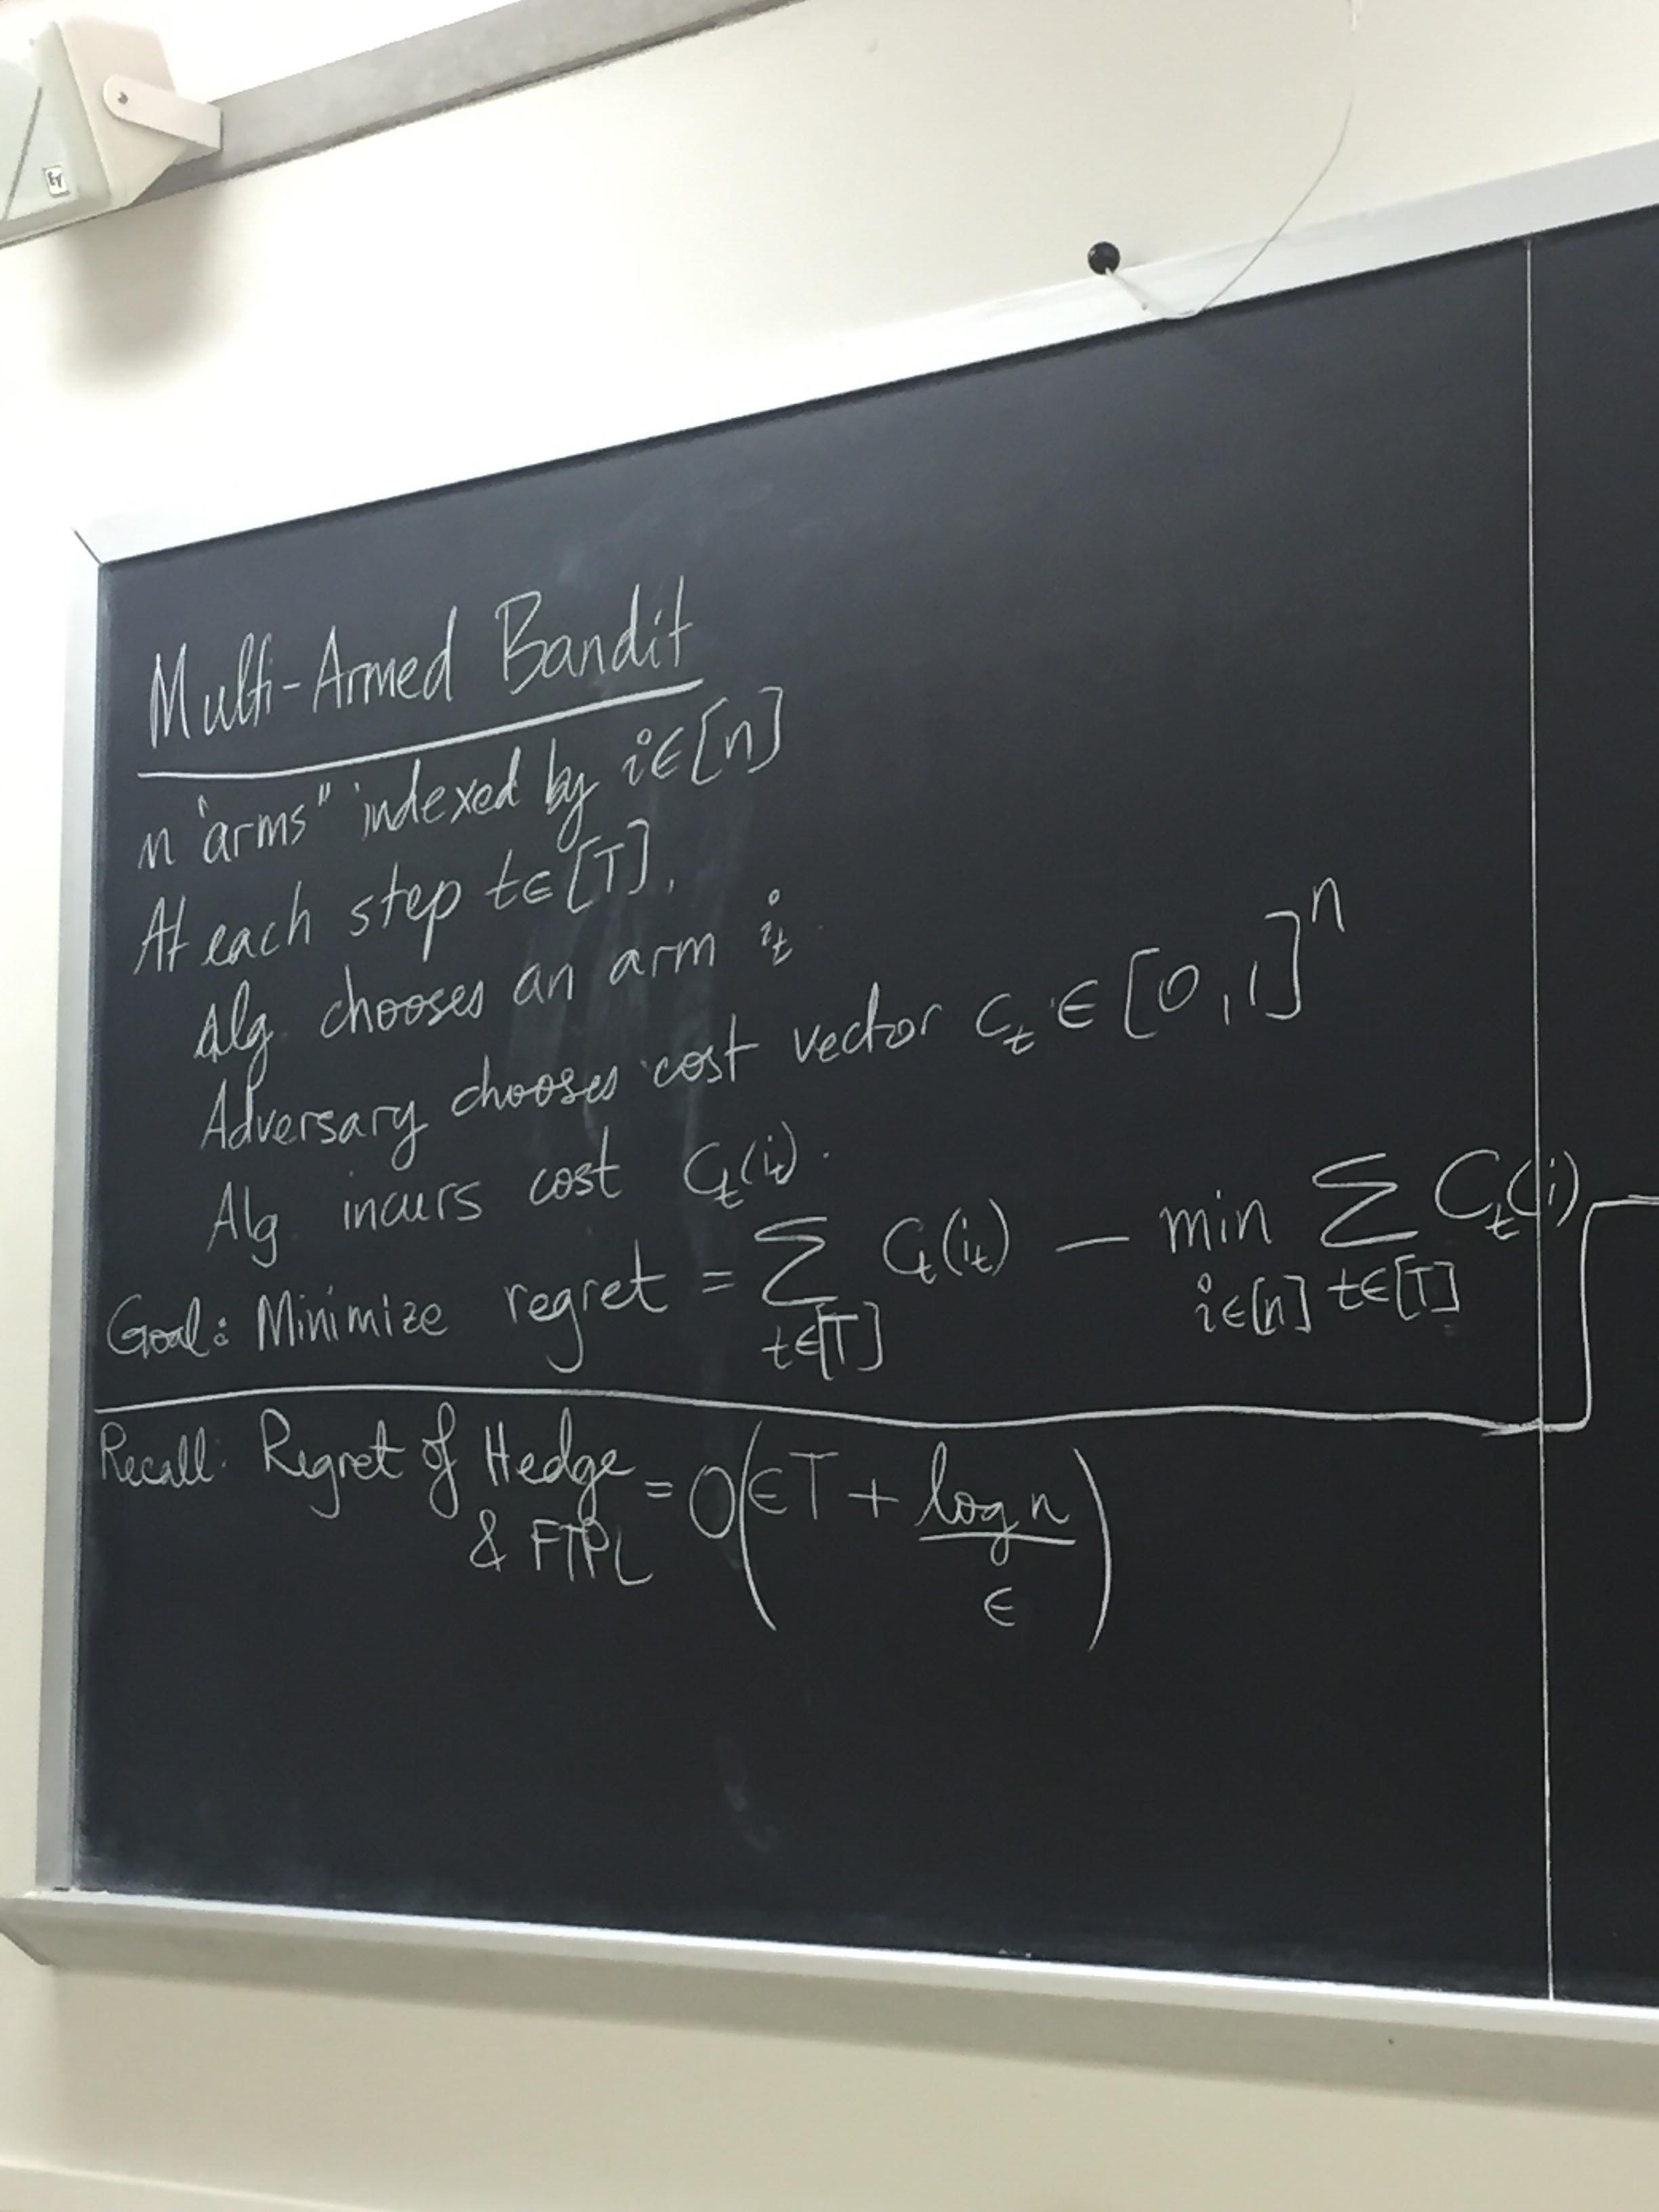 Multi-Armed Bandit
n "arms" indexed by i∈[n]
At each step t∈[T],
Alg. chooses an arm i_t.
Adversary chooses cost vector c_t ∈ [0,1]^n
Alg. incurs cost C_t(i_t).
Goal: Minimize regret = ∑_{t∈[T]} C_t(i_t) − min_{i∈[n]} ∑_{t∈[T]} C_t(i)
Recall: Regret of Hedge & FTPL = O(εT + log n / ε)